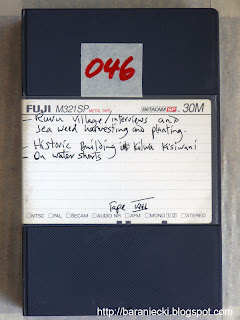 046
FUJI M321SP METAL TAPE BETACAM SP 30M
- Ruvu village / interviews and
sea weed harvesting and planting.
- Historic Building at Kilwa Kisiwani
- On water shorts
Tape
NTSC PAL SECAM AUDIO NR AFM MONO 1 2 STEREO
http://baraniecki.blogspot.com